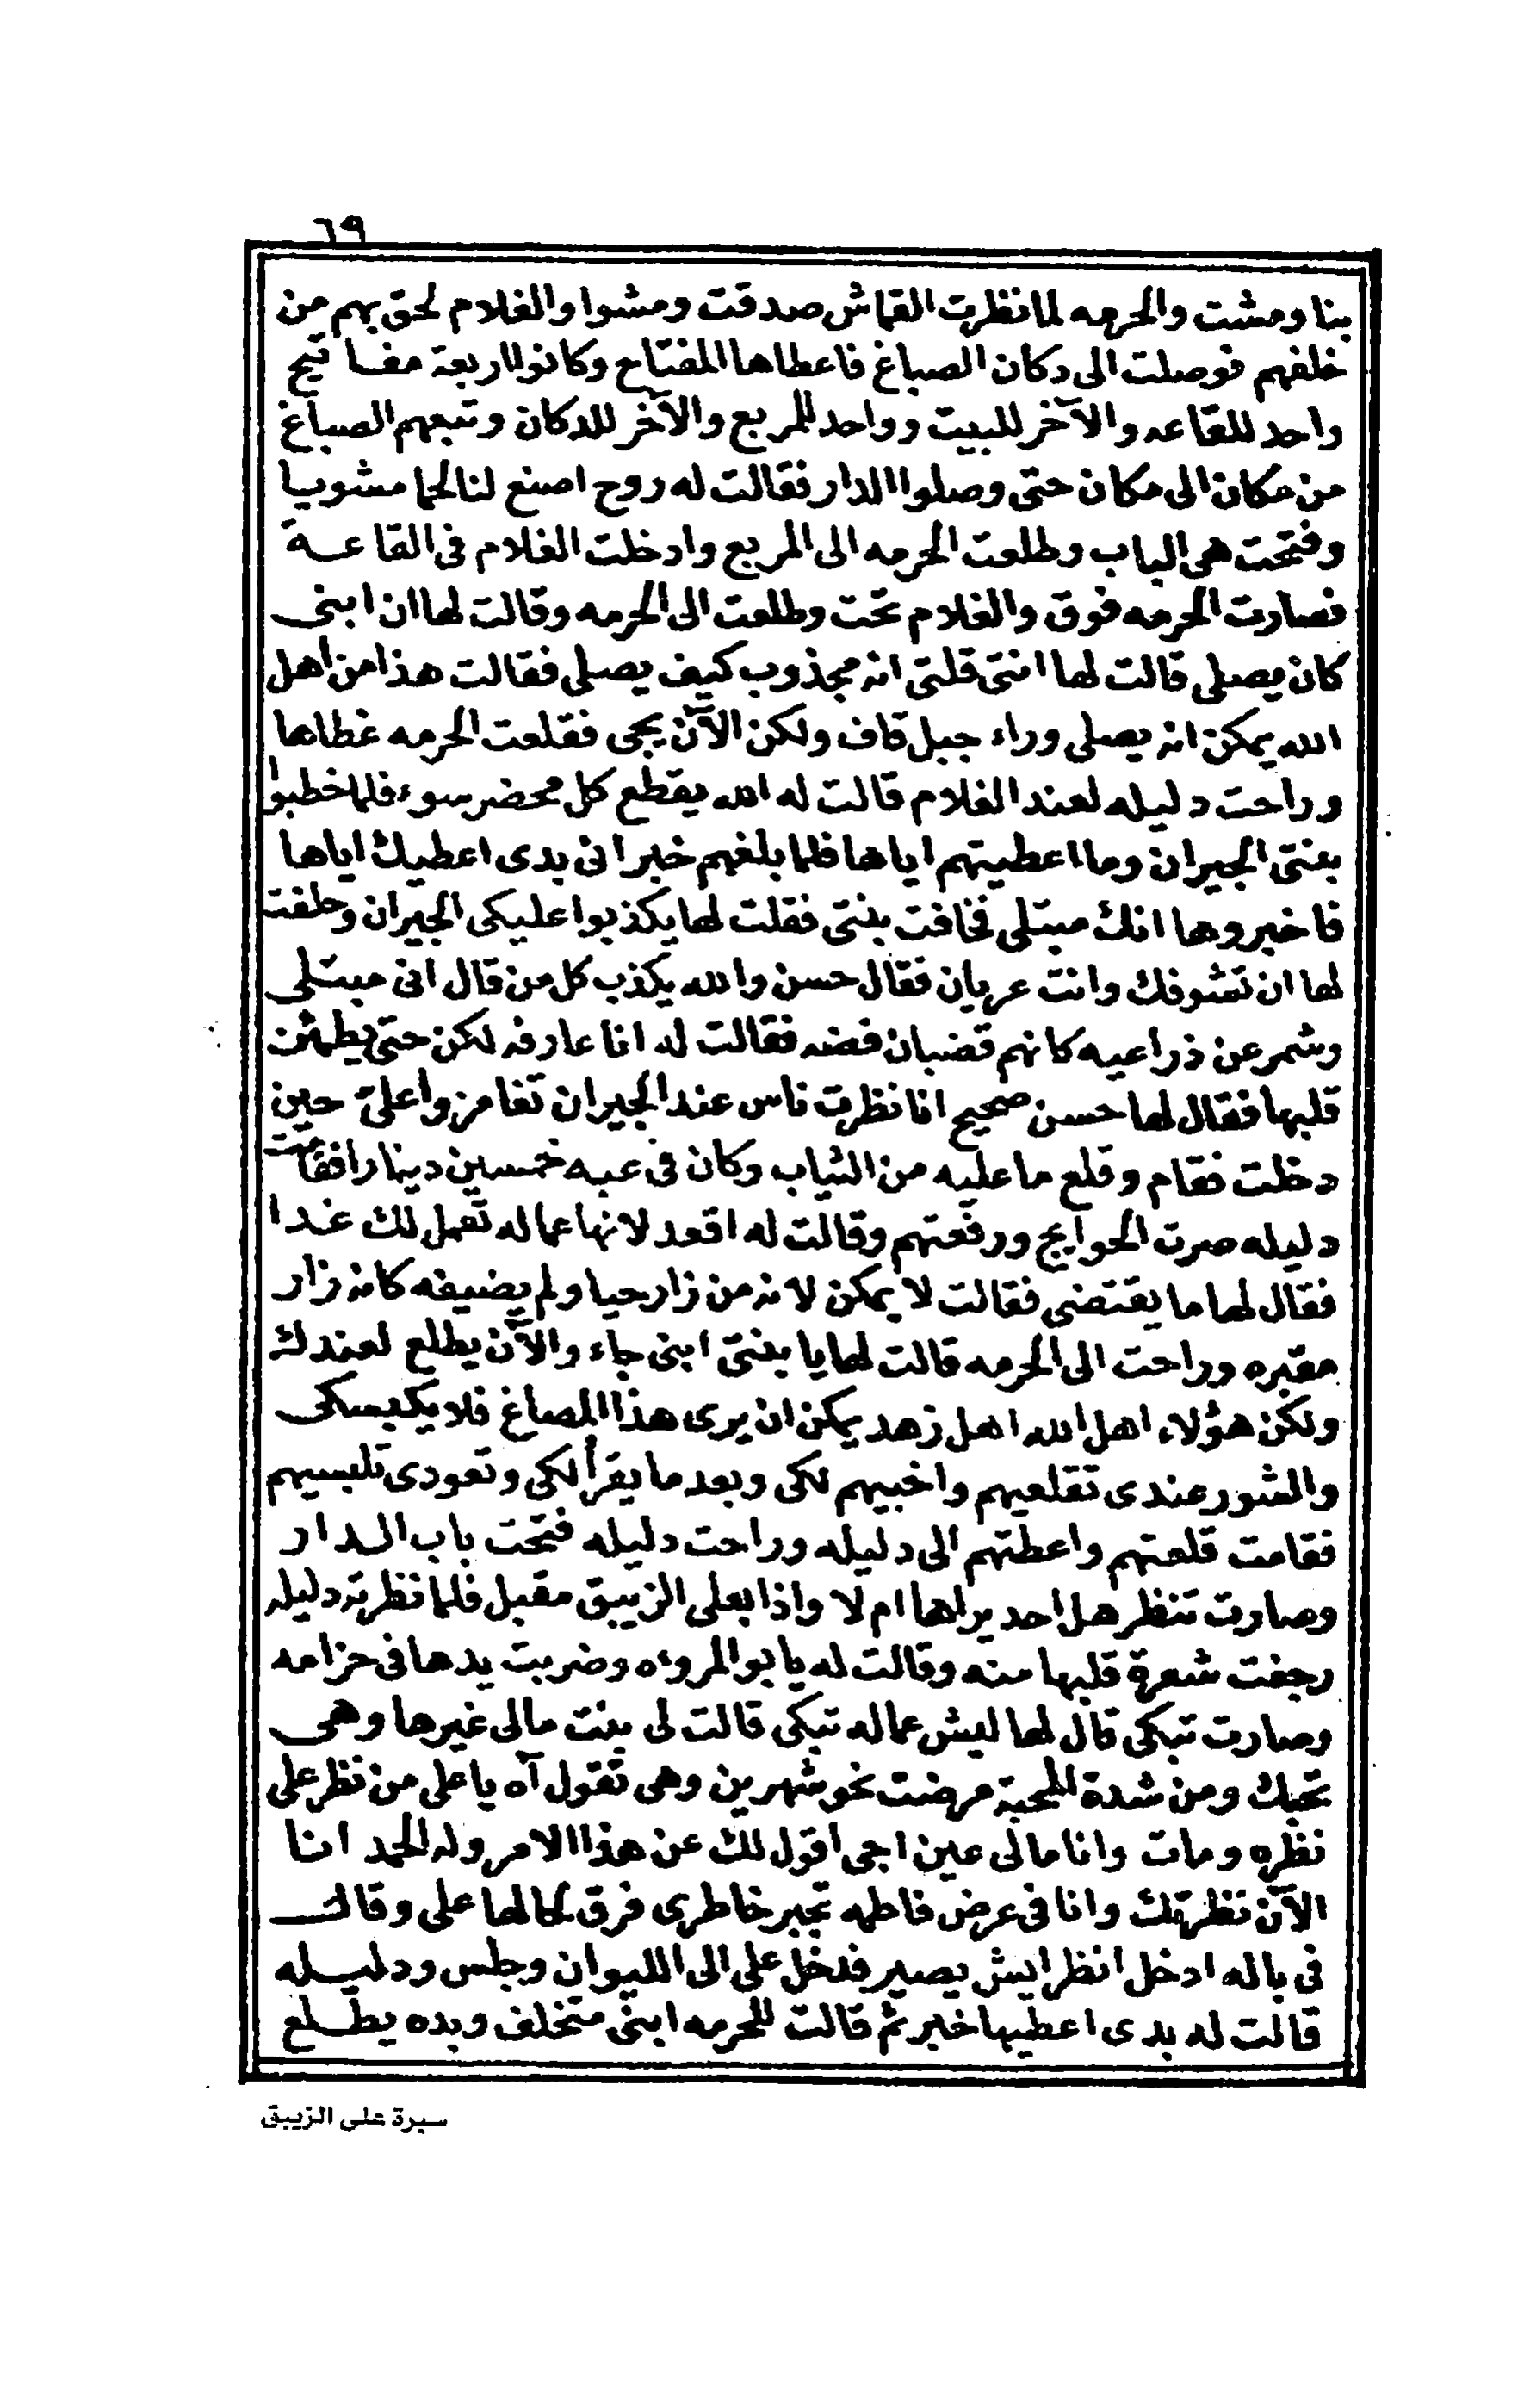 ٦٩
بنا ومشت والحرمه لما نظرت القماش صدقت ومشوا والغلام لحق بهم من
خلفهم فوصلت الى دكان الصباغ فاعطاها المفتاح وكانوا اربعة مفاتيح
واحد للقاعه والآخر للبيت وواحد للمربع والآخر للدكان وتبعهم الصباغ
من مكان الى مكان حتى وصلوا الدار فقالت له روح اصنع لنا لحما مشويا
وفتحت هى الباب وطلعت الحرمه الى المربع وادخلت الغلام فى القاعة
فصارت الحرمه فوق والغلام تحت وطلعت الى الحرمه وقالت لها ان ابنى
كان يصلى قالت لها انتى قلتى انه مجذوب كيف يصلى فقالت هذا من اهل
الله يمكن انه يصلى وراء جبل قاف ولكن الآن يجى فقلعت الحرمه غطاها
وراحت دليله لعند الغلام قالت له الله يقطع كل محضر سوء فلما خطبوا
بنتى الجيران وما اعطيتهم اياها فلما بلغهم خبر انى بدى اعطيك اياها
فاخبروها انك مبتلى فخافت بنتى فقلت لها يكذبوا عليكى الجيران وحلفت
لها ان تشوفك وانت عريان فقال حسن والله يكذب كل من قال انى مبتلى
وشمر عن ذراعيه كانهم قضبان فضه فقالت له انا عارفه لكن حتى يطمئن
قلبها فقال لها حسن صحيح انا نظرت ناس عند الجيران تغامزوا علىّ حين
دخلت فقام وقلع ما عليه من الثياب وكان فى عبه خمسين دينارا فقامت
دليله صرت الحوايج ورفعتهم وقالت له اقعد لانها عماله تعمل لك غدا
فقال لها ما يقتضى فقالت لا يمكن لانه من زار حيا ولم يضيفه كانه زار
مقبره وراحت الى الحرمه قالت لها يا بنتى ابنى جاء والآن يطلع لعندك
ولكن هؤلاء اهل الله اهل زهد يمكن ان يرى هذا المصاغ فلا يكبسكى
والشور عندى تقلعيهم واخبيهم لكى وبعد ما يقرأ لكى وتعودى تلبسيهم
فقامت قلعتهم واعطتهم الى دليله وراحت دليله فتحت باب الدار
وصارت تنظر هل احد يراها ام لا واذا بعلى الزيبق مقبل فلما نظرته دليله
رجفت شعرة قلبها منه وقالت له يا بو المروءه وضربت يدها فى حزامه
وصارت تبكى قال لها ليش عماله تبكى قالت لى بنت مالى غيرها وهى
تحبك ومن شدة المحبة مرضت نحو شهرين وهى تقول آه يا على من نظر على
نظره ومات وانا مالى عين اجى اقول لك عن هذا الامر وله الحمد انا
الآن نظرتك وانا فى عرض فاطمه تجبر خاطرى فرق لحالها على وقال
فى باله ادخل انظر ايش يصير فدخل على الى الليوان وجلس ودليله
قالت له بدى اعطيها خبر ثم قالت للحرمه ابنى متخلف وبده يطلع
سيرة على الزيبق